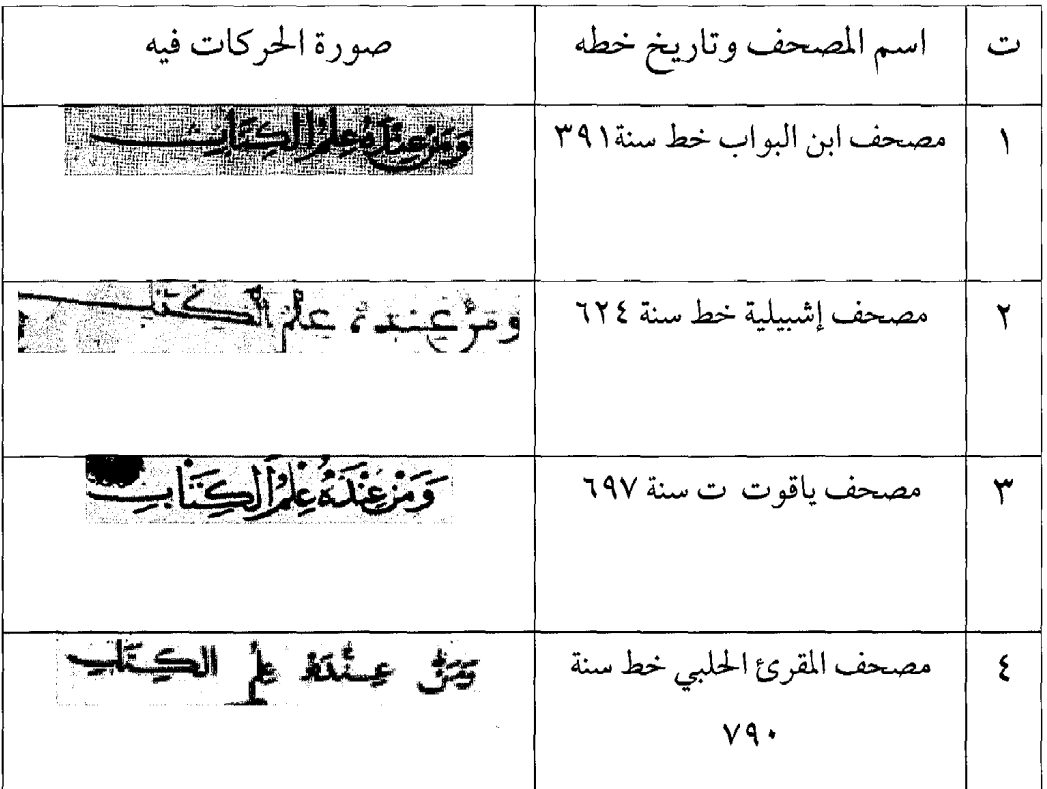 ت اسم المصحف وتاريخ خطه صورة الحركات فيه
١ مصحف ابن البواب خط سنة٣٩١ وَمَنْ عِنْدَهُ عِلْمُ الْكِتَابِ
٢ مصحف إشبيلية خط سنة ٦٢٤ وَمَنْ عِندَهُ عِلْمُ الْكِتَبِ
٣ مصحف ياقوت ت سنة ٦٩٧ وَمَنْ عِنْدَهُ عِلْمُ الْكِتَابِ
٤ مصحف المقرئ الحلبي خط سنة وَمَنْ عِنْدَهُ عِلْمُ الْكِتَابِ
٧٩٠